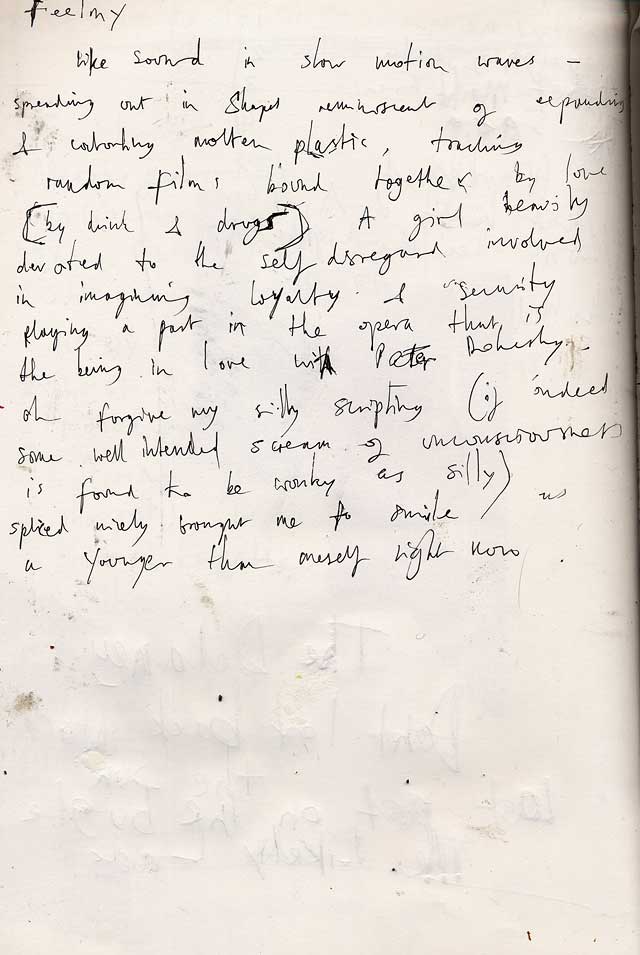 Feeling
Like sound in slow motion waves -
spreading out in shapes reminiscent of expanding
& contorting molten plastic, touching
random films bound together by love
(by drink & drugs) A girl heavily
devoted to the self disregard involved
in imagining loyalty & security
playing a part in the opera that is
the being in love with Peter Doherty -
oh forgive my silly scripting (if indeed
some well intended scream of unconsciousness
is found to be as silly)
spliced nicely brought me to smile
a younger than meself right now.